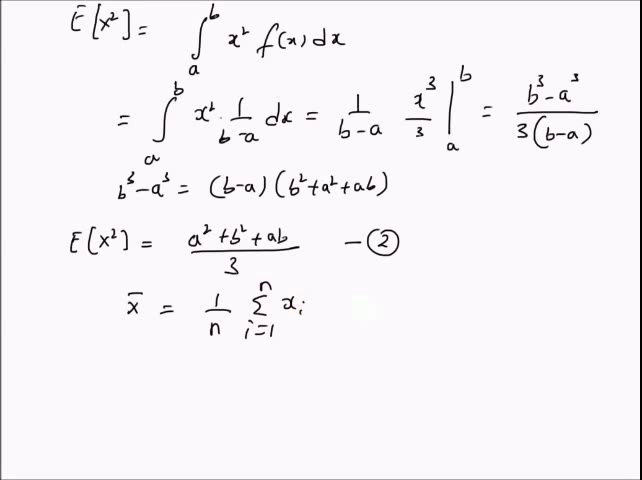 E[x²] = ∫ₐᵇ x² f(x) dx
= ∫ₐᵇ x² · 1/(b-a) dx = 1/(b-a) x³/3 |ₐᵇ = (b³-a³)/(3(b-a))
b³-a³ = (b-a)(b²+a²+ab)
E[x²] = (a²+b²+ab)/3 - ②
x̄ = 1/n Σᵢ₌₁ⁿ xᵢ